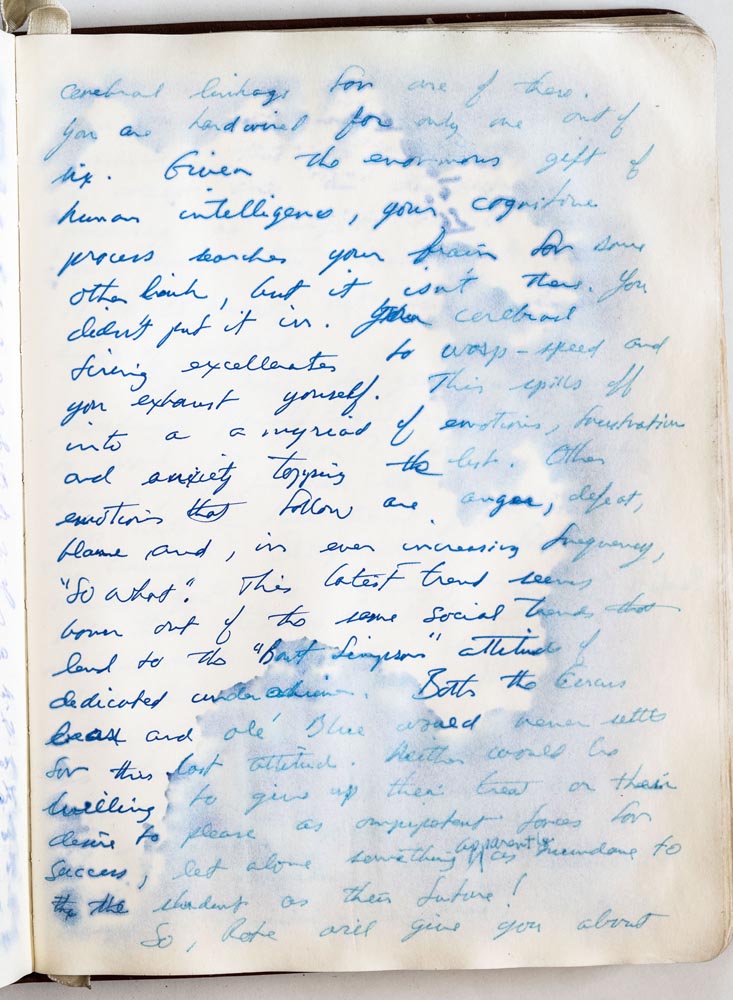 cerebral linkage for one of these.
You are hardwired for only one out of
six. Given the enormous gift of
human intelligence, your cognitive
process searches your brain for some
other link, but it isn't there. You
didn't put it in. Your cerebral
firing excellerates to warp-speed and
you exhaust yourself. This spills off
into a a myriad of emotions, frustration
and anxiety topping the list. Other
emotions that follow are anger, defeat,
blame and, in ever increasing frequency,
"So what". This latest trend seems
born out of the same social trends that
lead to the "Bart Simpson" attitude of
dedicated underachiever. Both the Circus
beast and ole' Blue would never settle
for this last attitude. Neither would be
willing to give up their treat or their
desire to please as omnipotent forces for
success, let alone something apparently as mundane to
the the student as their future!
So, Rote will give you about